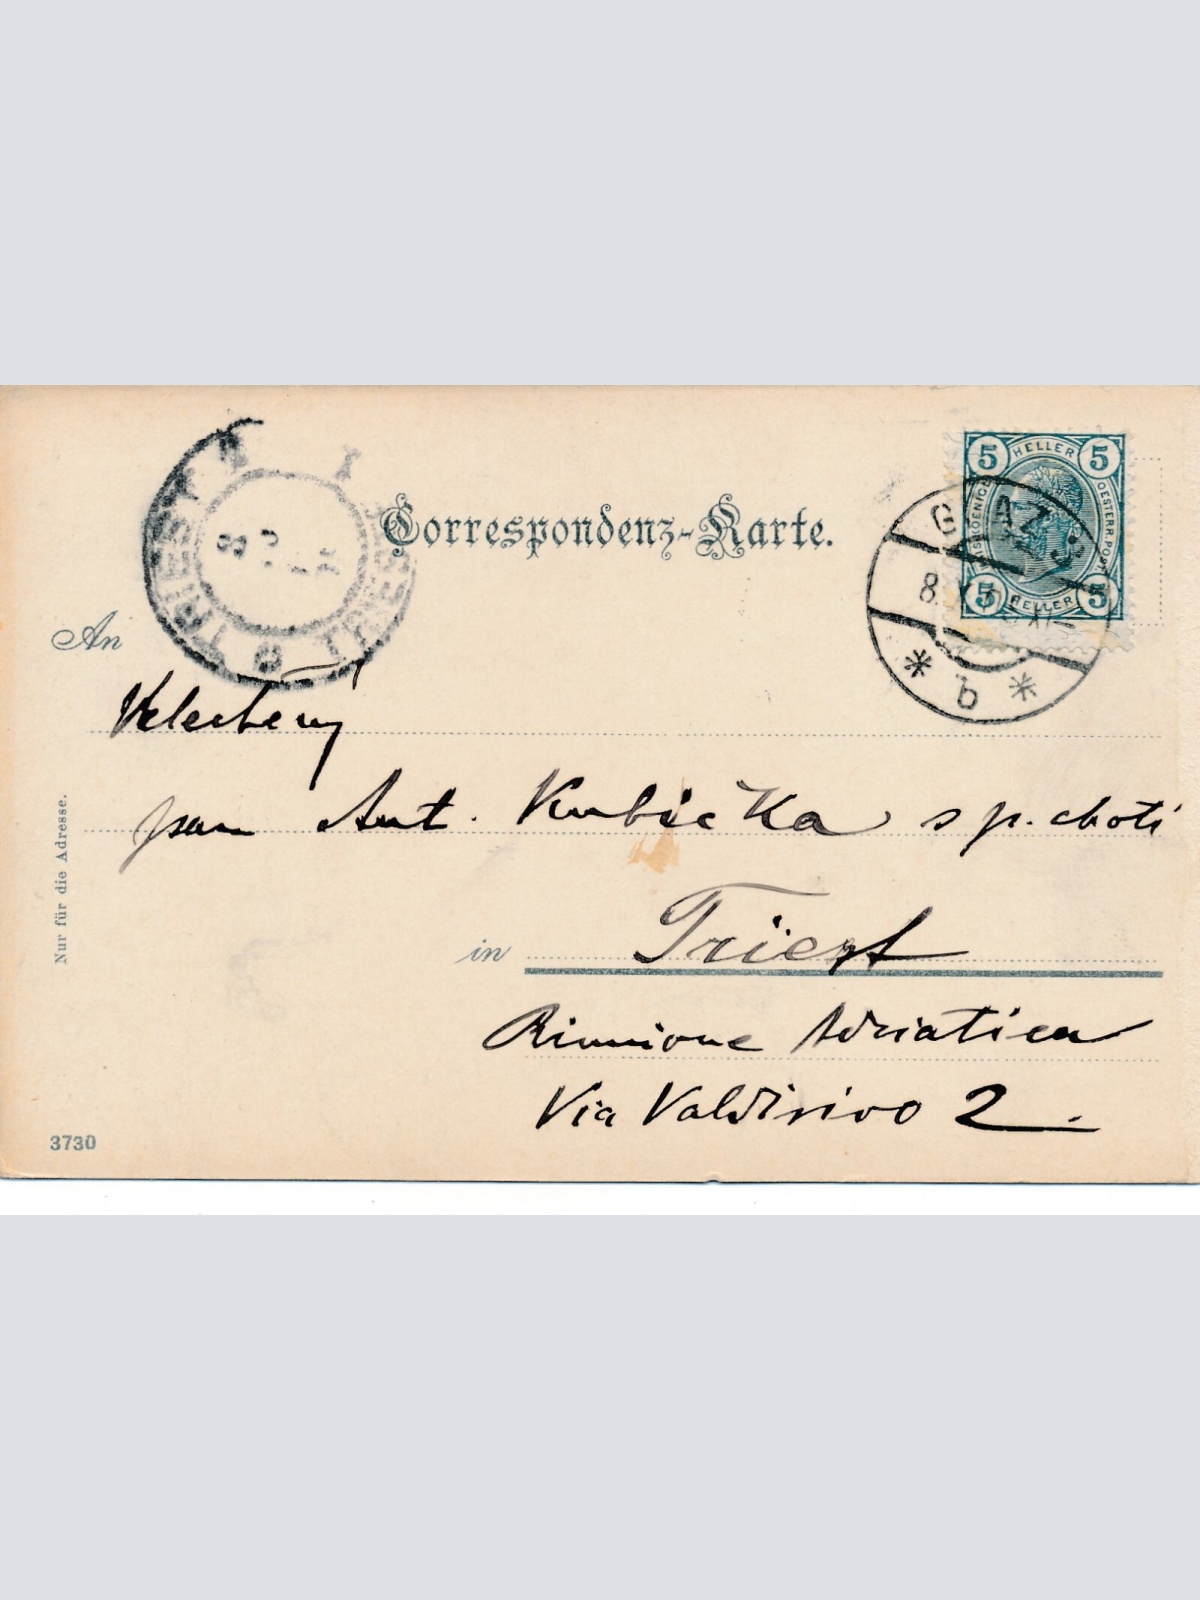 Correspondenz-Karte.
5 HELLER 5
OESTERR.POST
5 HELLER 5
GRAZ
8.
* b *
TRIEST
TRIESTE
An
Velectěný
pan Ant. Kubička s p. chotí
in Triest
Riunione Adriatica
Via Valdirivo 2.
Nur für die Adresse.
3730